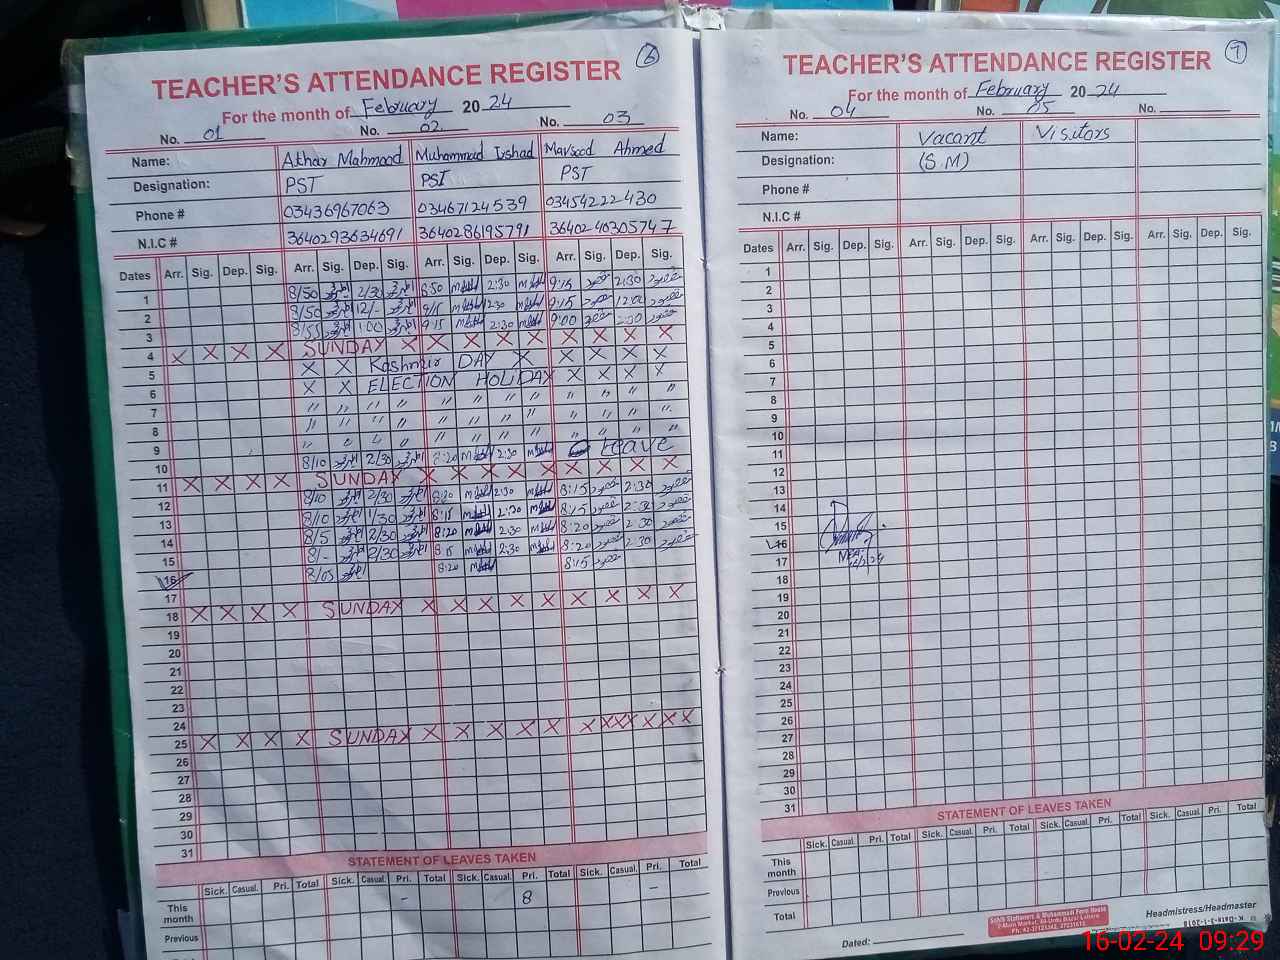 6
TEACHER'S ATTENDANCE REGISTER
For the month of February 2024
No. 01 No. 02 No. 03
Name: Athar Mahmood Muhammad Irshad Maqsood Ahmed
Designation: PST PST PST
Phone # 03436967063 03467124539 03454222430
N.I.C # 3640293634691 3640286195791 36402-40305747
Dates Arr. Sig. Dep. Sig. Arr. Sig. Dep. Sig. Arr. Sig. Dep. Sig. Arr. Sig. Dep. Sig.
1 8/50 2/30 8:50 2:30 9:15 2:30
2 8/50 12/- 9/15 12:30 9:15 12:00
3 8/55 1:00 9:15 2:30 9:00 2:30
4 X X X X SUNDAY X X X X X X X X X
5 X X Kashmir DAY X X X X X
6 X X ELECTION HOLIDAY X X X X
7 " " " " " " " " " " " "
8 " " " " " " " " " " " "
9 " " " " " " " " " " " "
10 8/10 2/30 8:20 2:30 Leave
11 X X X X SUNDAY X X X X X X X X X
12 8/10 2/30 8:20 2:30 8:15 2:30
13 8/10 1/30 8:15 2:30 8:15 2:30
14 8/5 2/30 8:20 2:30 8:20 2:30
15 8/- 2/30 8:15 2:30 8:20 2:30
16 8/05 8:20 8:15
17
18 X X X X SUNDAY X X X X X X X X X
19
20
21
22
23
24
25 X X X X SUNDAY X X X X X X X X X X X
26
27
28
29
30
31
STATEMENT OF LEAVES TAKEN
Sick. Casual. Pri. Total Sick. Casual. Pri. Total Sick. Casual. Pri. Total Sick. Casual. Pri. Total
This month - 8 -
Previous
7
TEACHER'S ATTENDANCE REGISTER
For the month of February 2024
No. 04 No. 05 No.
Name: Vacant Visitors
Designation: (S.M)
Phone #
N.I.C #
Dates Arr. Sig. Dep. Sig. Arr. Sig. Dep. Sig. Arr. Sig. Dep. Sig. Arr. Sig. Dep. Sig.
1
2
3
4
5
6
7
8
9
10
11
12
13
14
15
16
17
18
19
20
21
22
23
24
25
26
27
28
29
30
31
STATEMENT OF LEAVES TAKEN
Sick. Casual. Pri. Total Sick. Casual. Pri. Total Sick. Casual. Pri. Total Sick. Casual. Pri. Total
This month
Previous
Total
Headmistress/Headmaster
Dated:
16-02-24 09:29